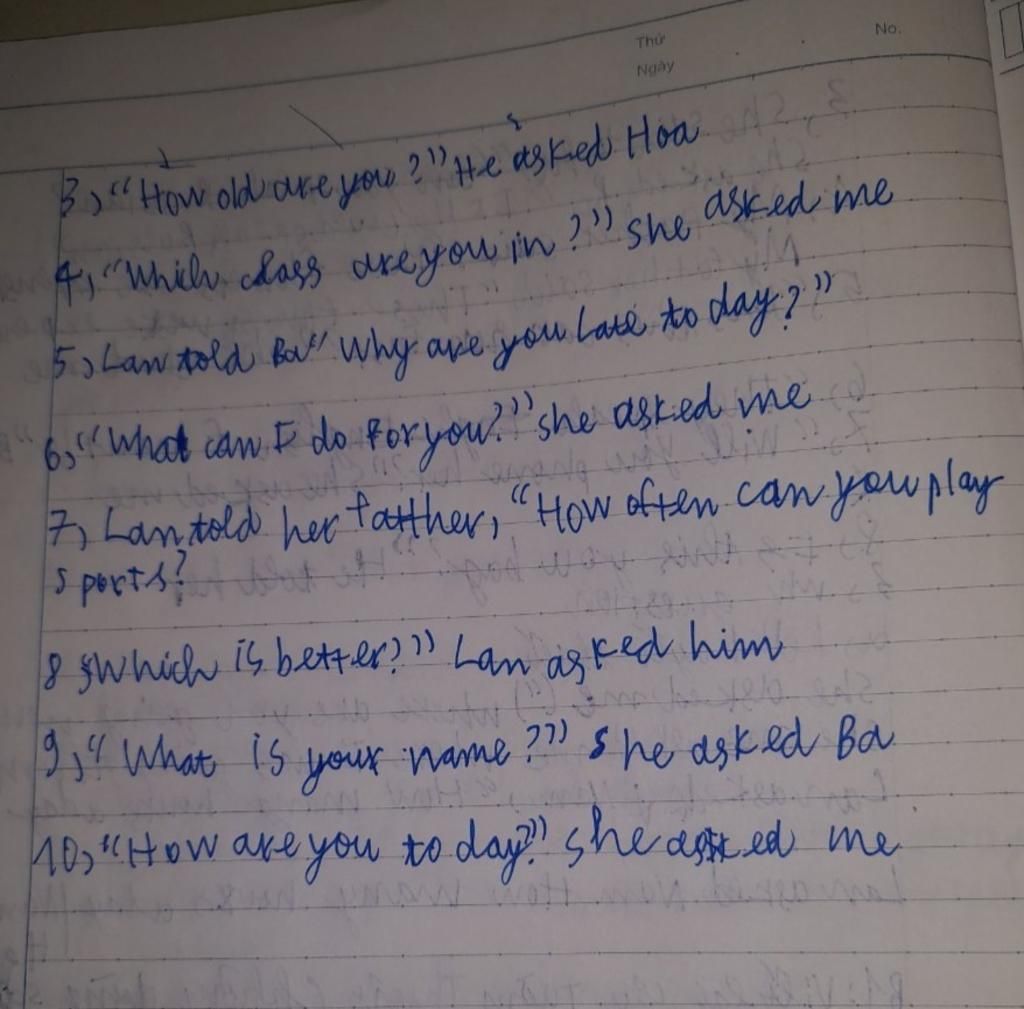 Thứ
No.
Ngày
3, "How old are you?" He asked Hoa
4, "Which class are you in?" she asked me
5, Lan told Ba "Why are you late to day?"
6, "What can I do for you?" she asked me
7, Lan told her father, "How often can you play
sports?
8, which is better?" Lan asked him
9, "What is your name?" she asked Ba
10, "How are you to day?" she asked me